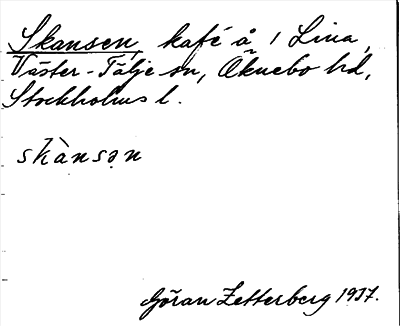 Skansen, kafé å 1 Lina,
Väster-Tälje sn, Öknebo hd,
Stockholms l.
skànsən
Göran Zetterberg 1937.